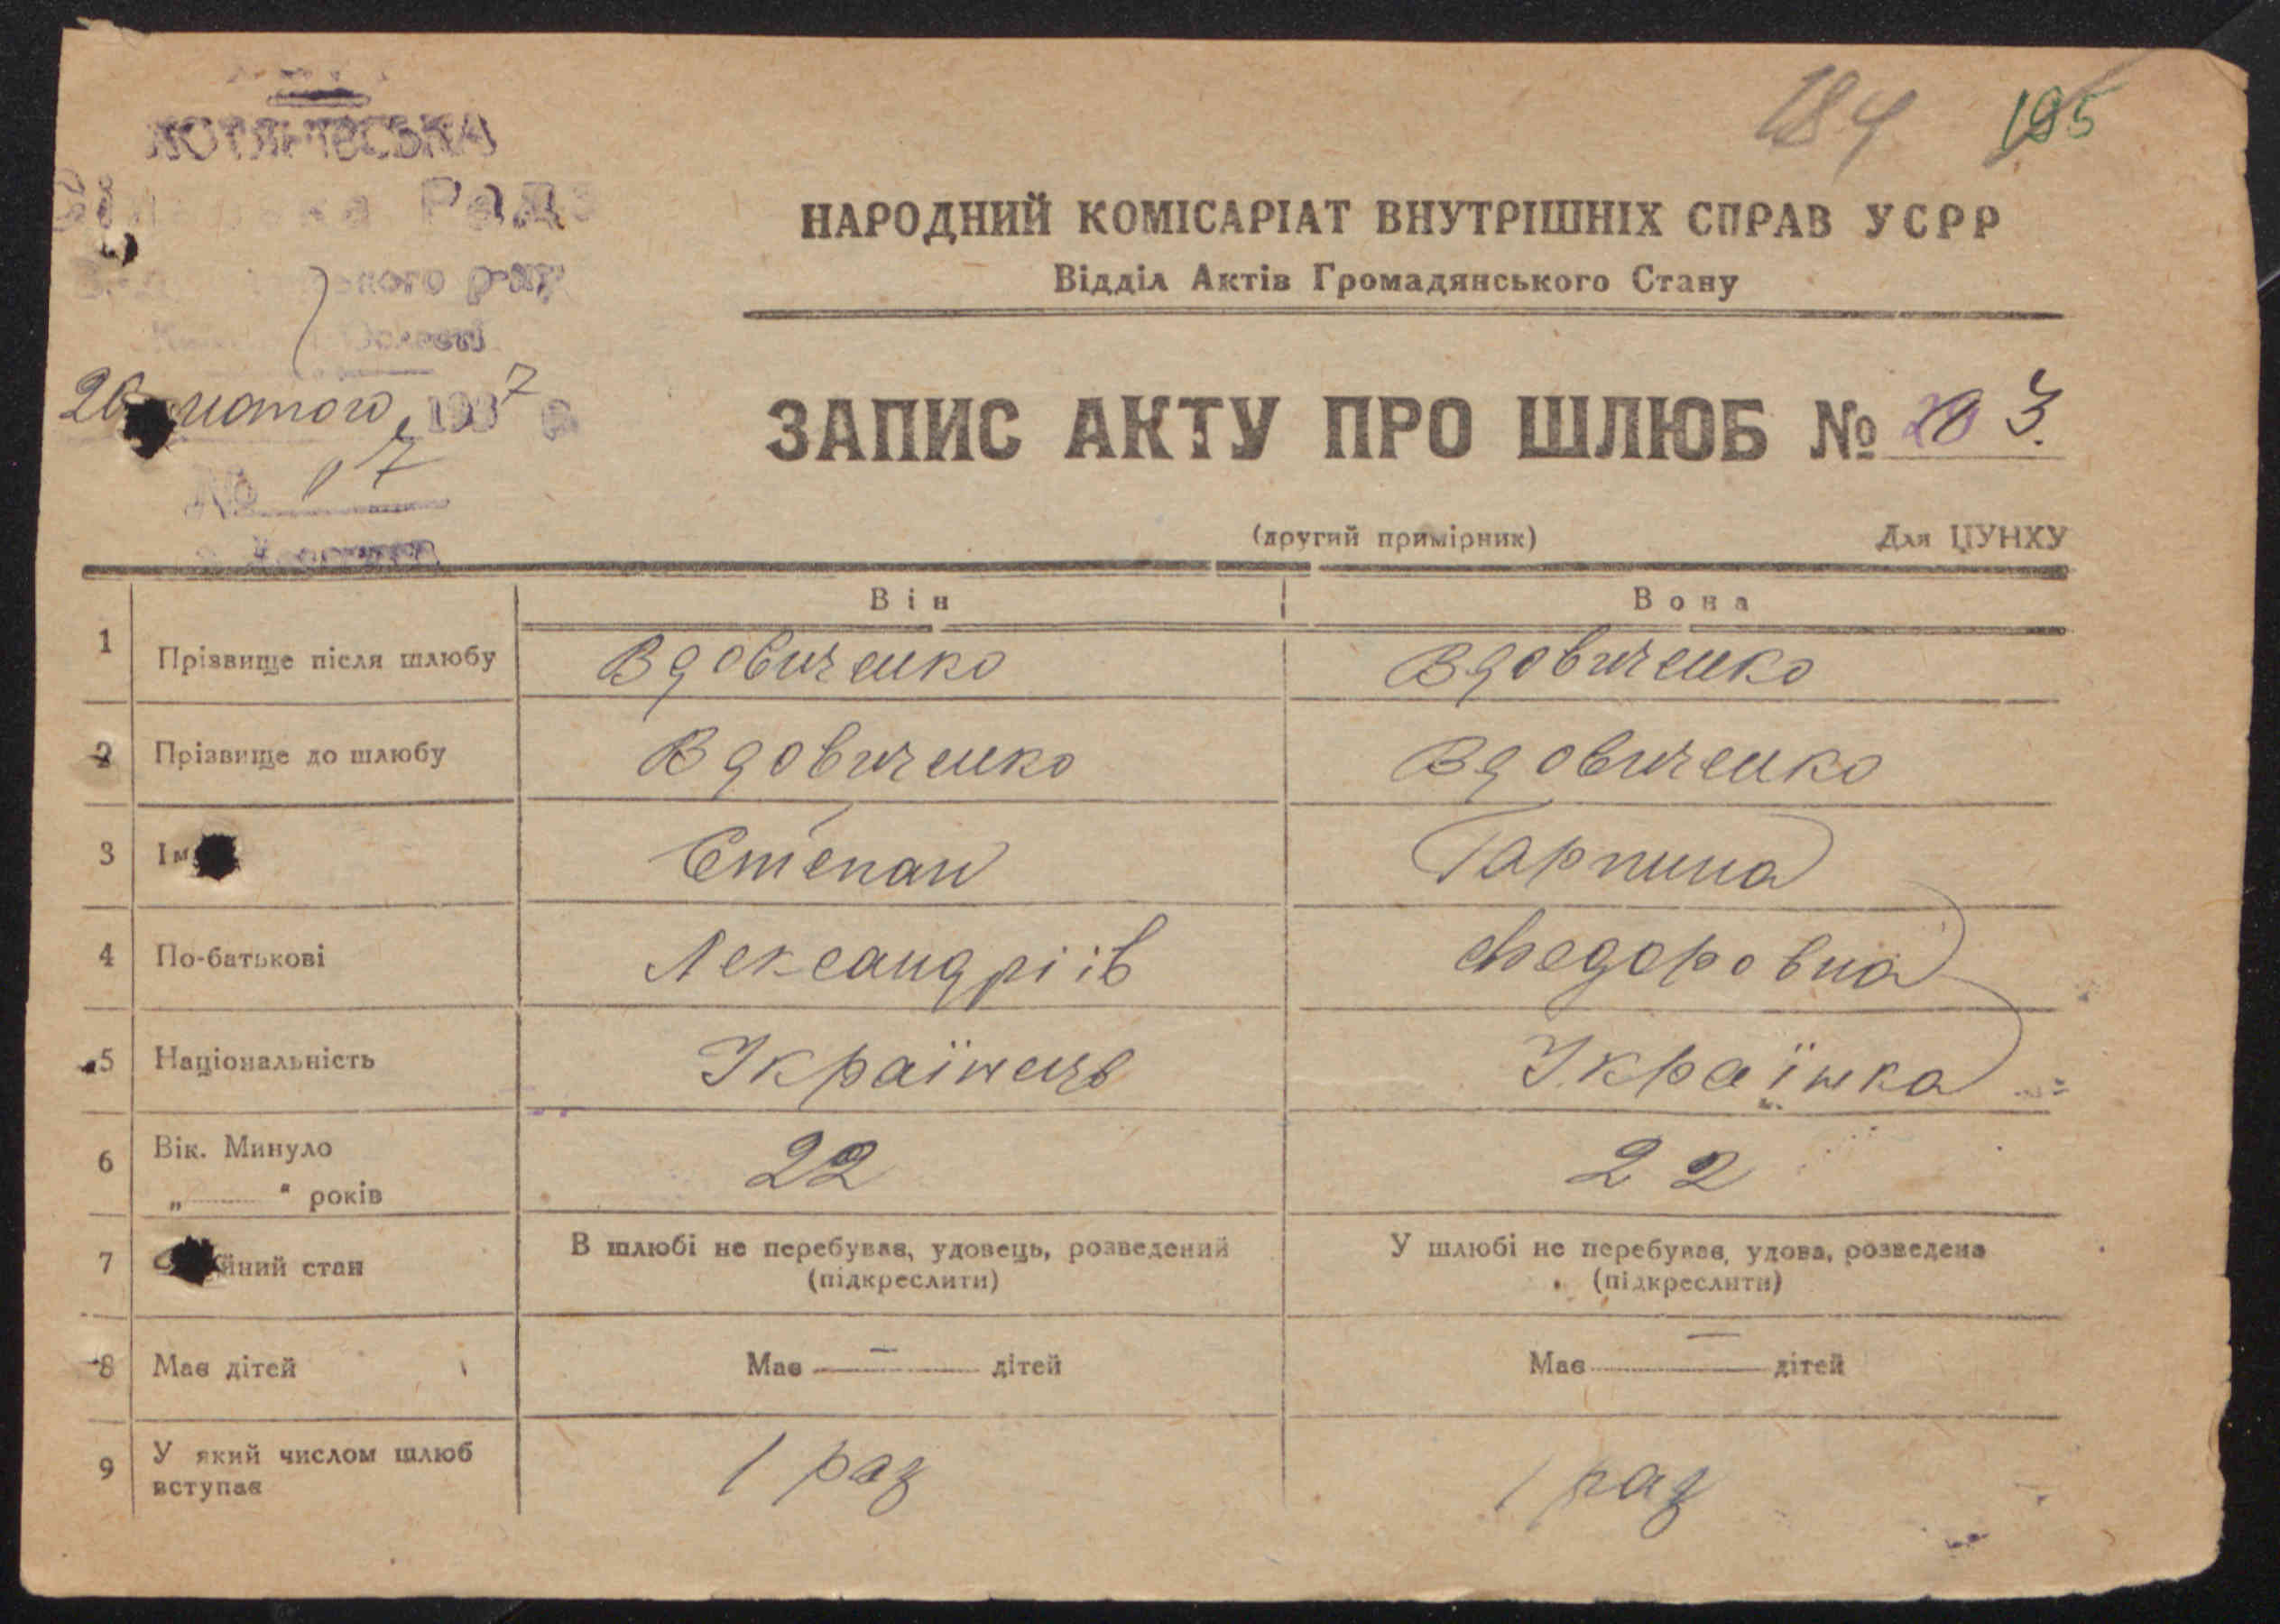 184 195
Рада
р-ну
НАРОДНИЙ КОМІСАРІАТ ВНУТРІШНІХ СПРАВ УСРР
Відділ Актів Громадянського Стану
лютого 1937 р
№ 17
ЗАПИС АКТУ ПРО ШЛЮБ № 3.
(другий примірник) Для ЦУНХУ
Він Вона
1 Прізвище після шлюбу Вдовиченко Вдовиченко
2 Прізвище до шлюбу Вдовиченко Вдовиченко
3 Ім Степан Гарпина
4 По-батькові Лександріів Федоровна
5 Національність Українець Українка
6 Вік. Минуло 22 22
„ “ років
7 йний стан В шлюбі не перебував, удовець, розведений У шлюбі не перебував, удова, розведена
(підкреслити) (підкреслити)
8 Має дітей Має — дітей Має — дітей
9 У який числом шлюб 1 раз 1 раз
вступає